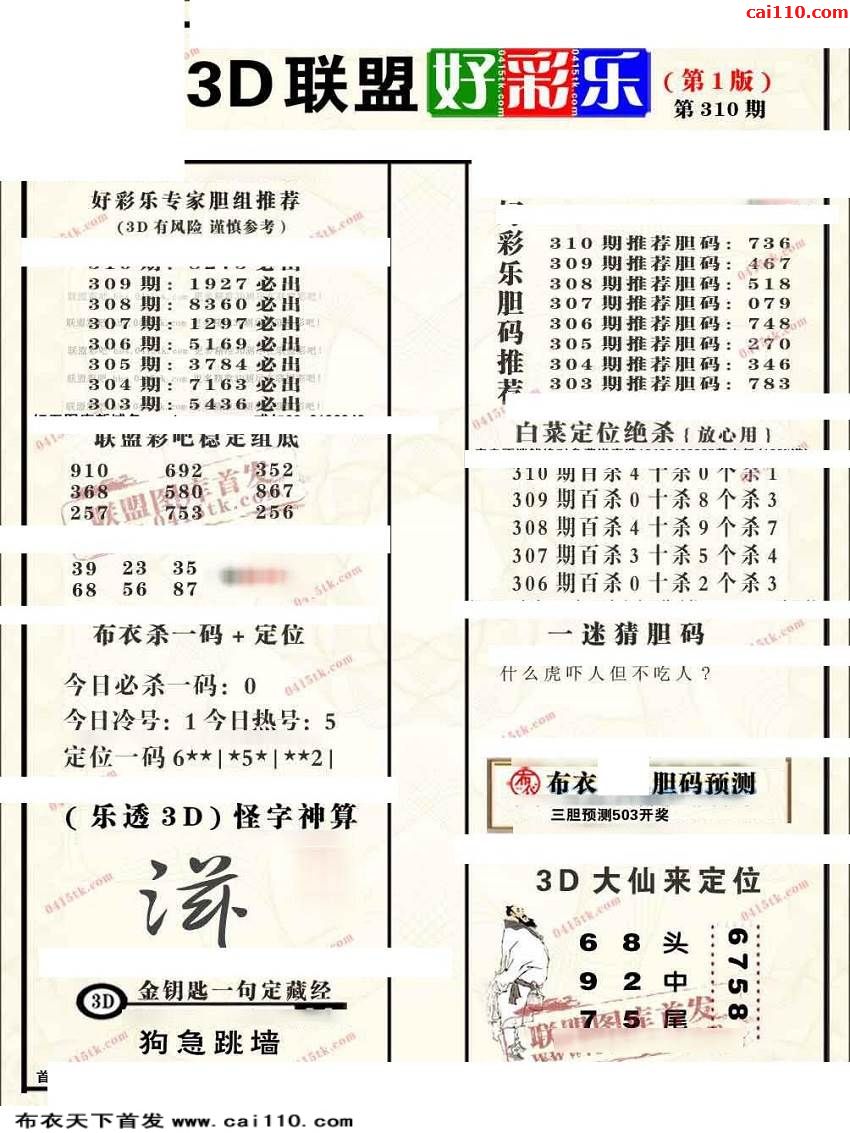 cai110.com
3D联盟好彩乐
(第1版)
第310期
好彩乐专家胆组推荐
(3D有风险 谨慎参考)
309期: 1927必出
308期: 8360必出
307期: 1297必出
306期: 5169必出
305期: 3784必出
304期: 7163必出
303期: 5436必出
联盟彩吧稳定组底
910 692 352
368 580 867
257 753 256
39 23 35
68 56 87
布衣杀一码+定位
今日必杀一码: 0
今日冷号: 1 今日热号: 5
定位一码6**|*5*|**2|
(乐透3D)怪字神算
滋
3D 金钥匙一句定藏经
狗急跳墙
首
彩乐胆码推荐
310期推荐胆码: 736
309期推荐胆码: 467
308期推荐胆码: 518
307期推荐胆码: 079
306期推荐胆码: 748
305期推荐胆码: 270
304期推荐胆码: 346
303期推荐胆码: 783
白菜定位绝杀{放心用}
310期百杀4十杀0个杀1
309期百杀0十杀8个杀3
308期百杀4十杀9个杀7
307期百杀3十杀5个杀4
306期百杀0十杀2个杀3
一迷猜胆码
什么虎吓人但不吃人?
布 布衣 胆码预测
三胆预测503开奖
3D大仙来定位
6 8 头
9 2 中
7 5 尾
6758
联盟图库首发
0415tk.com
布衣天下首发 www.cai110.com